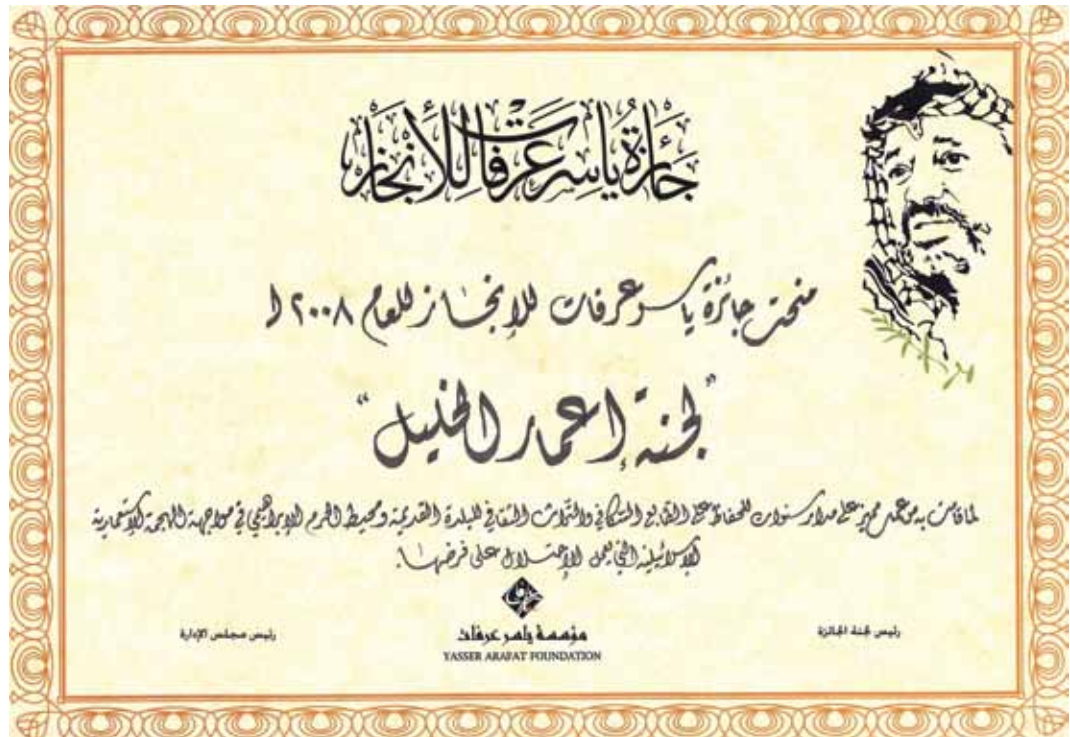 جائزة ياسر عرفات للإنجاز
منحت جائزة ياسر عرفات للإنجاز للعام ٢٠٠٨ لـ
"لجنة إعمار الخليل"
لما قامت به من عمل مميز على مدار سنوات للحفاظ على الطابع السكاني والتراث الثقافي للبلدة القديمة ومحيط الحرم الإبراهيمي في مواجهة الهجمة الإستعمارية
الإسرائيلية التي يعمل الإحتلال على فرضها.
رئيس لجنة الجائزة
مؤسسة ياسر عرفات
YASSER ARAFAT FOUNDATION
رئيس مجلس الإدارة